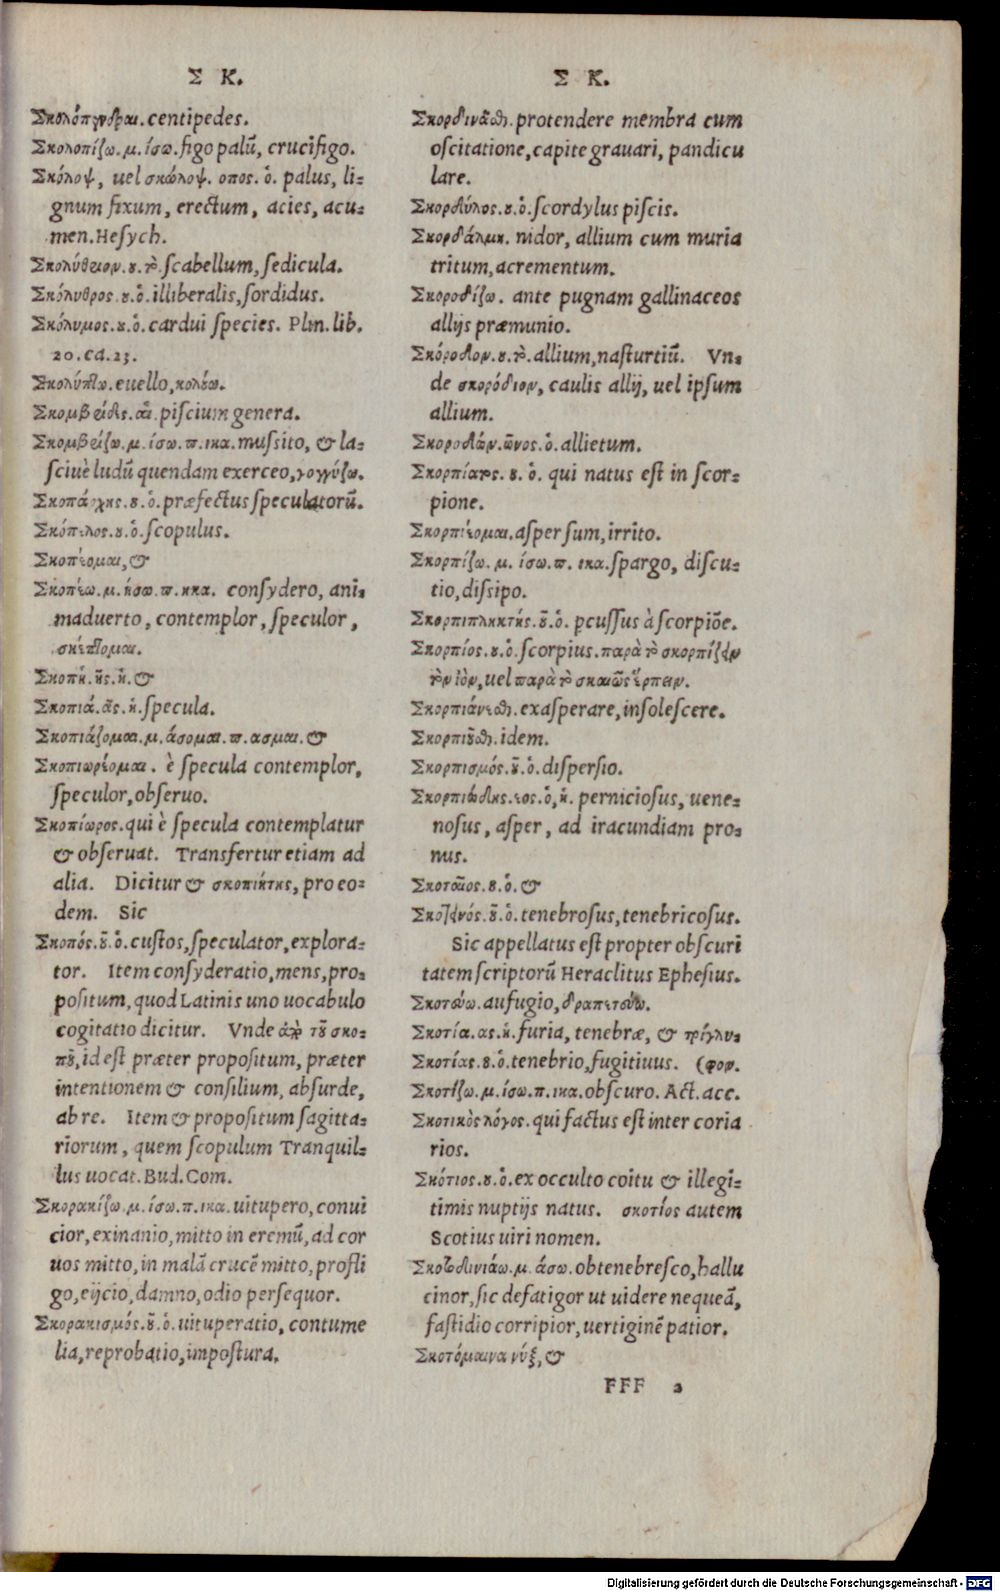 Σ Κ.
Σκολόπενδραι. centipedes.
Σκολοπίζω. μ. ίσω. figo palũ, crucifigo.
Σκόλοψ, uel σκώλοψ. οπος. ὁ. palus, li-
gnum fixum, erectum, acies, acu-
men. Hesych.
Σκολύθριον. ου. τὸ. scabellum, sedicula.
Σκόλυθρος. ου. ὁ. illiberalis, sordidus.
Σκόλυμος. ου. ὁ. cardui species. Plin. lib.
20. ca. 23.
Σκολύπτω. euello, κολούω.
Σκομβρίδες. αἱ. piscium genera.
Σκομβρίζω. μ. ίσω. π. ικα. mussito, & la-
sciuè ludũ quendam exerceo, γογγύζω.
Σκοπάρχης. ου. ὁ. præfectus speculatorũ.
Σκόπελος. ου. ὁ. scopulus.
Σκοπέομαι, &
Σκοπέω. μ. ήσω. π. ηκα. consydero, ani-
maduerto, contemplor, speculor,
σκέπτομαι.
Σκοπή. ῆς. ἡ. &
Σκοπιά. ᾶς. ἡ. specula.
Σκοπιάζομαι. μ. άσομαι. π. ασμαι. &
Σκοπιωρέομαι. è specula contemplor,
speculor, obseruo.
Σκοπίωρος. qui è specula contemplatur
& obseruat. Transfertur etiam ad
alia. Dicitur & σκοπιήτης, pro eo-
dem. Sic
Σκοπός. οῦ. ὁ. custos, speculator, explora-
tor. Item consyderatio, mens, pro-
positum, quod Latinis uno uocabulo
cogitatio dicitur. Vnde ἀπὸ τοῦ σκο-
ποῦ, id est præter propositum, præter
intentionem & consilium, absurde,
ab re. Item & propositum sagitta-
riorum, quem scopulum Tranquil-
lus uocat. Bud. Com.
Σκορακίζω. μ. ίσω. π. ικα. uitupero, conui
cior, exinanio, mitto in eremũ, ad cor
uos mitto, in malã crucẽ mitto, profli
go, eijcio, damno, odio persequor.
Σκορακισμός. οῦ. ὁ. uituperatio, contume
lia, reprobatio, impostura.
Σ Κ.
Σκορδινᾶσθαι. protendere membra cum
oscitatione, capite grauari, pandicu
lare.
Σκορδύλος. ου. ὁ. scordylus piscis.
Σκορδάλμη. nidor, allium cum muria
tritum, acrementum.
Σκοροδίζω. ante pugnam gallinaceos
allijs præmunio.
Σκόροδον. ου. τὸ. allium, nasturtiũ. Vn-
de σκορόδιον, caulis allij, uel ipsum
allium.
Σκοροδών. ῶνος. ὁ. allietum.
Σκορπίατος. ου. ὁ. qui natus est in scor-
pione.
Σκορπιέομαι. asper sum, irrito.
Σκορπίζω. μ. ίσω. π. ικα. spargo, discu-
tio, dissipo.
Σκορπιπληκτής. οῦ. ὁ. pcussus à scorpiõe.
Σκορπίος. ου. ὁ. scorpius. παρὰ τὸ σκορπίζειν
τὸν ἰὸν, uel παρὰ τὸ σκαιῶς ἕρπειν.
Σκορπιάνεσθαι. exasperare, insolescere.
Σκορπιοῦσθαι. idem.
Σκορπισμός. οῦ. ὁ. dispersio.
Σκορπιώδης. εος. ὁ, ἡ. perniciosus, uene-
nosus, asper, ad iracundiam pro-
nus.
Σκοταῖος. ου. ὁ. &
Σκοτεινός. οῦ. ὁ. tenebrosus, tenebricosus.
Sic appellatus est propter obscuri
tatem scriptorũ Heraclitus Ephesius.
Σκοτεύω. aufugio, δραπετεύω.
Σκοτία. ας. ἡ. furia, tenebræ, & τρίγλυ-
Σκοτίας. ου. ὁ. tenebrio, fugitiuus. (φον.
Σκοτίζω. μ. ίσω. π. ικα. obscuro. Act. acc.
Σκοτικὸς λόγος. qui factus est inter coria
rios.
Σκότιος. ου. ὁ. ex occulto coitu & illegi-
timis nuptijs natus. σκοτίος autem
Scotius uiri nomen.
Σκοτοδινιάω. μ. άσω. obtenebresco, hallu
cinor, sic defatigor ut uidere nequeã,
fastidio corripior, uertiginẽ patior.
Σκοτόμαινα νύξ, &
FFF 2
Digitalisierung gefördert durch die Deutsche Forschungsgemeinschaft - DFG